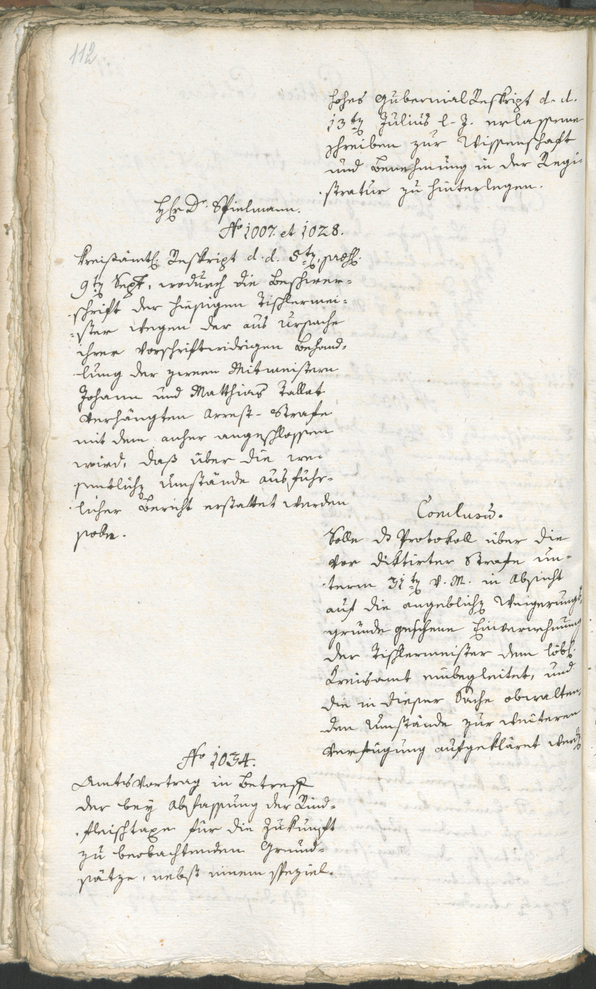 112
hohes Gubernial Reskript d. d.
13tn Julius l. J. erlassene
schreiben zur Wissenschaft
und Benehmung in der Regi-
stratur zu hinterlegen.
Hhr Dr. Spielmann.
No 1007. et 1028.
Kreisämtl. Reskript d. d. 5tn, praes.
9tn Sept, wodurch die Beschwer-
schrift der hiesigen Tischlermei-
ster wegen der aus Ursache
ihrer vorschriftwidrigen Behand-
lung der zween Mitmeistern
Johann und Matthias Tallat
verhängten Arrest-Strafe
mit dem anher angeschlossen
wird, daß über die we-
sentliche Umstände ausführ-
licher Bericht erstattet werden
solle.
Conclusum.
Solle das Protokoll über die
vor diktirter Strafe un-
term 31tn v. M. in Absicht
auf die angebliche Weigerungs-
gründe geschene Einvernehmung
der Tischlermeister dem löbl.
Kreisamt einbegleitet, und
die in dieser Sache obwalten-
den Umstände zur weiteren
Verfügung aufgekläret werden
No 1034.
Amtsvortrag in Betreff
der bey Abfassung der Rind-
fleischtaxe für die Zukunft
zu beobachtenden Grund-
sätze, nebst einem speziel-